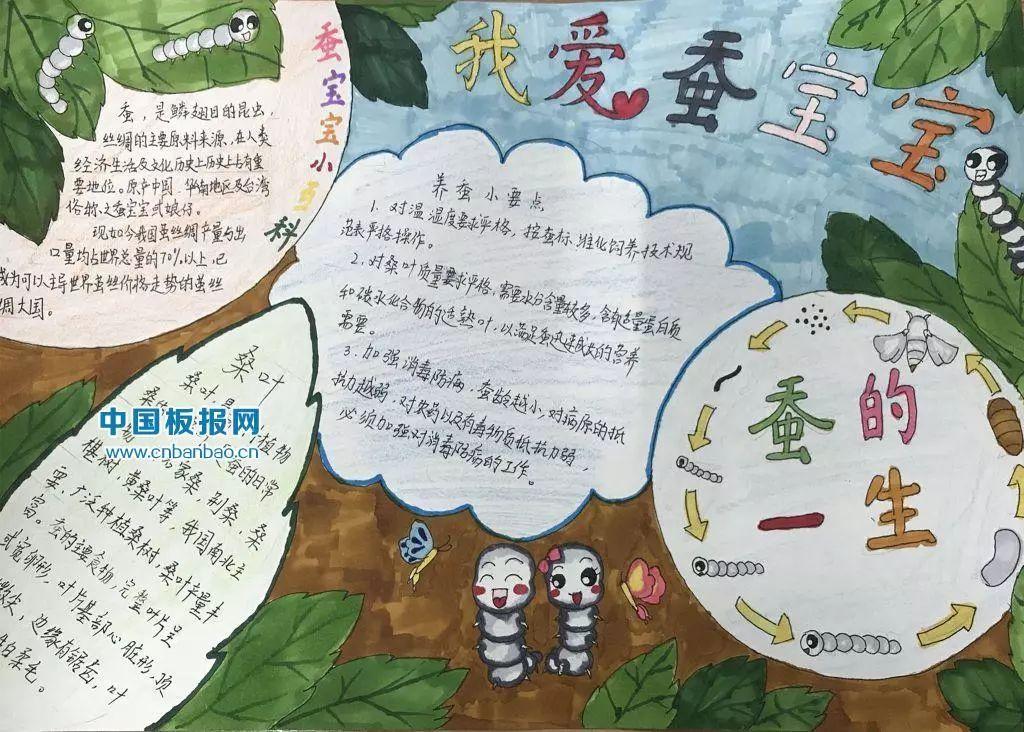 我爱蚕宝宝
蚕宝宝小百科
蚕，是鳞翅目的昆虫，
丝绸的主要原料来源，在人类
经济生活及文化历史上历史上占有重
要地位。原产中国，华南地区及台湾
俗称之蚕宝宝或娘仔。
现如今我国蚕丝绸产量与出
口量均占世界总量的70%以上，已
成为可以主导世界蚕丝价格走势的蚕丝
绸大国。
养蚕小要点
1．对温湿度要求严格，按查标准化饲养技术规
范表严格操作。
2．对桑叶质量要求严格，需要水分含量较多，含有适量蛋白质
和碳水化合物的适熟叶，以满足蚕迅速成长的营养
需要。
3．加强消毒防病，蚕龄越小，对病原的抵
抗力越弱，对农药以及有毒物质抵抗力弱，
必须加强对消毒防病的工作。
桑叶
桑叶是
植物
桑
蚕的日常
物
家桑，荆桑，桑
椹树，黄桑叶等，我国南北主
要、广泛种植桑树，桑叶产量丰
富。蚕的主要食物，完整叶片呈
或宽卵形，叶片基部心脏形，顶
尖，边缘有锯齿，叶
柔毛。
中国板报网
www.cnbanbao.cn
蚕的
一生